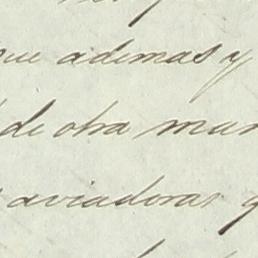 que ademas y
de otra man
aviadoras q